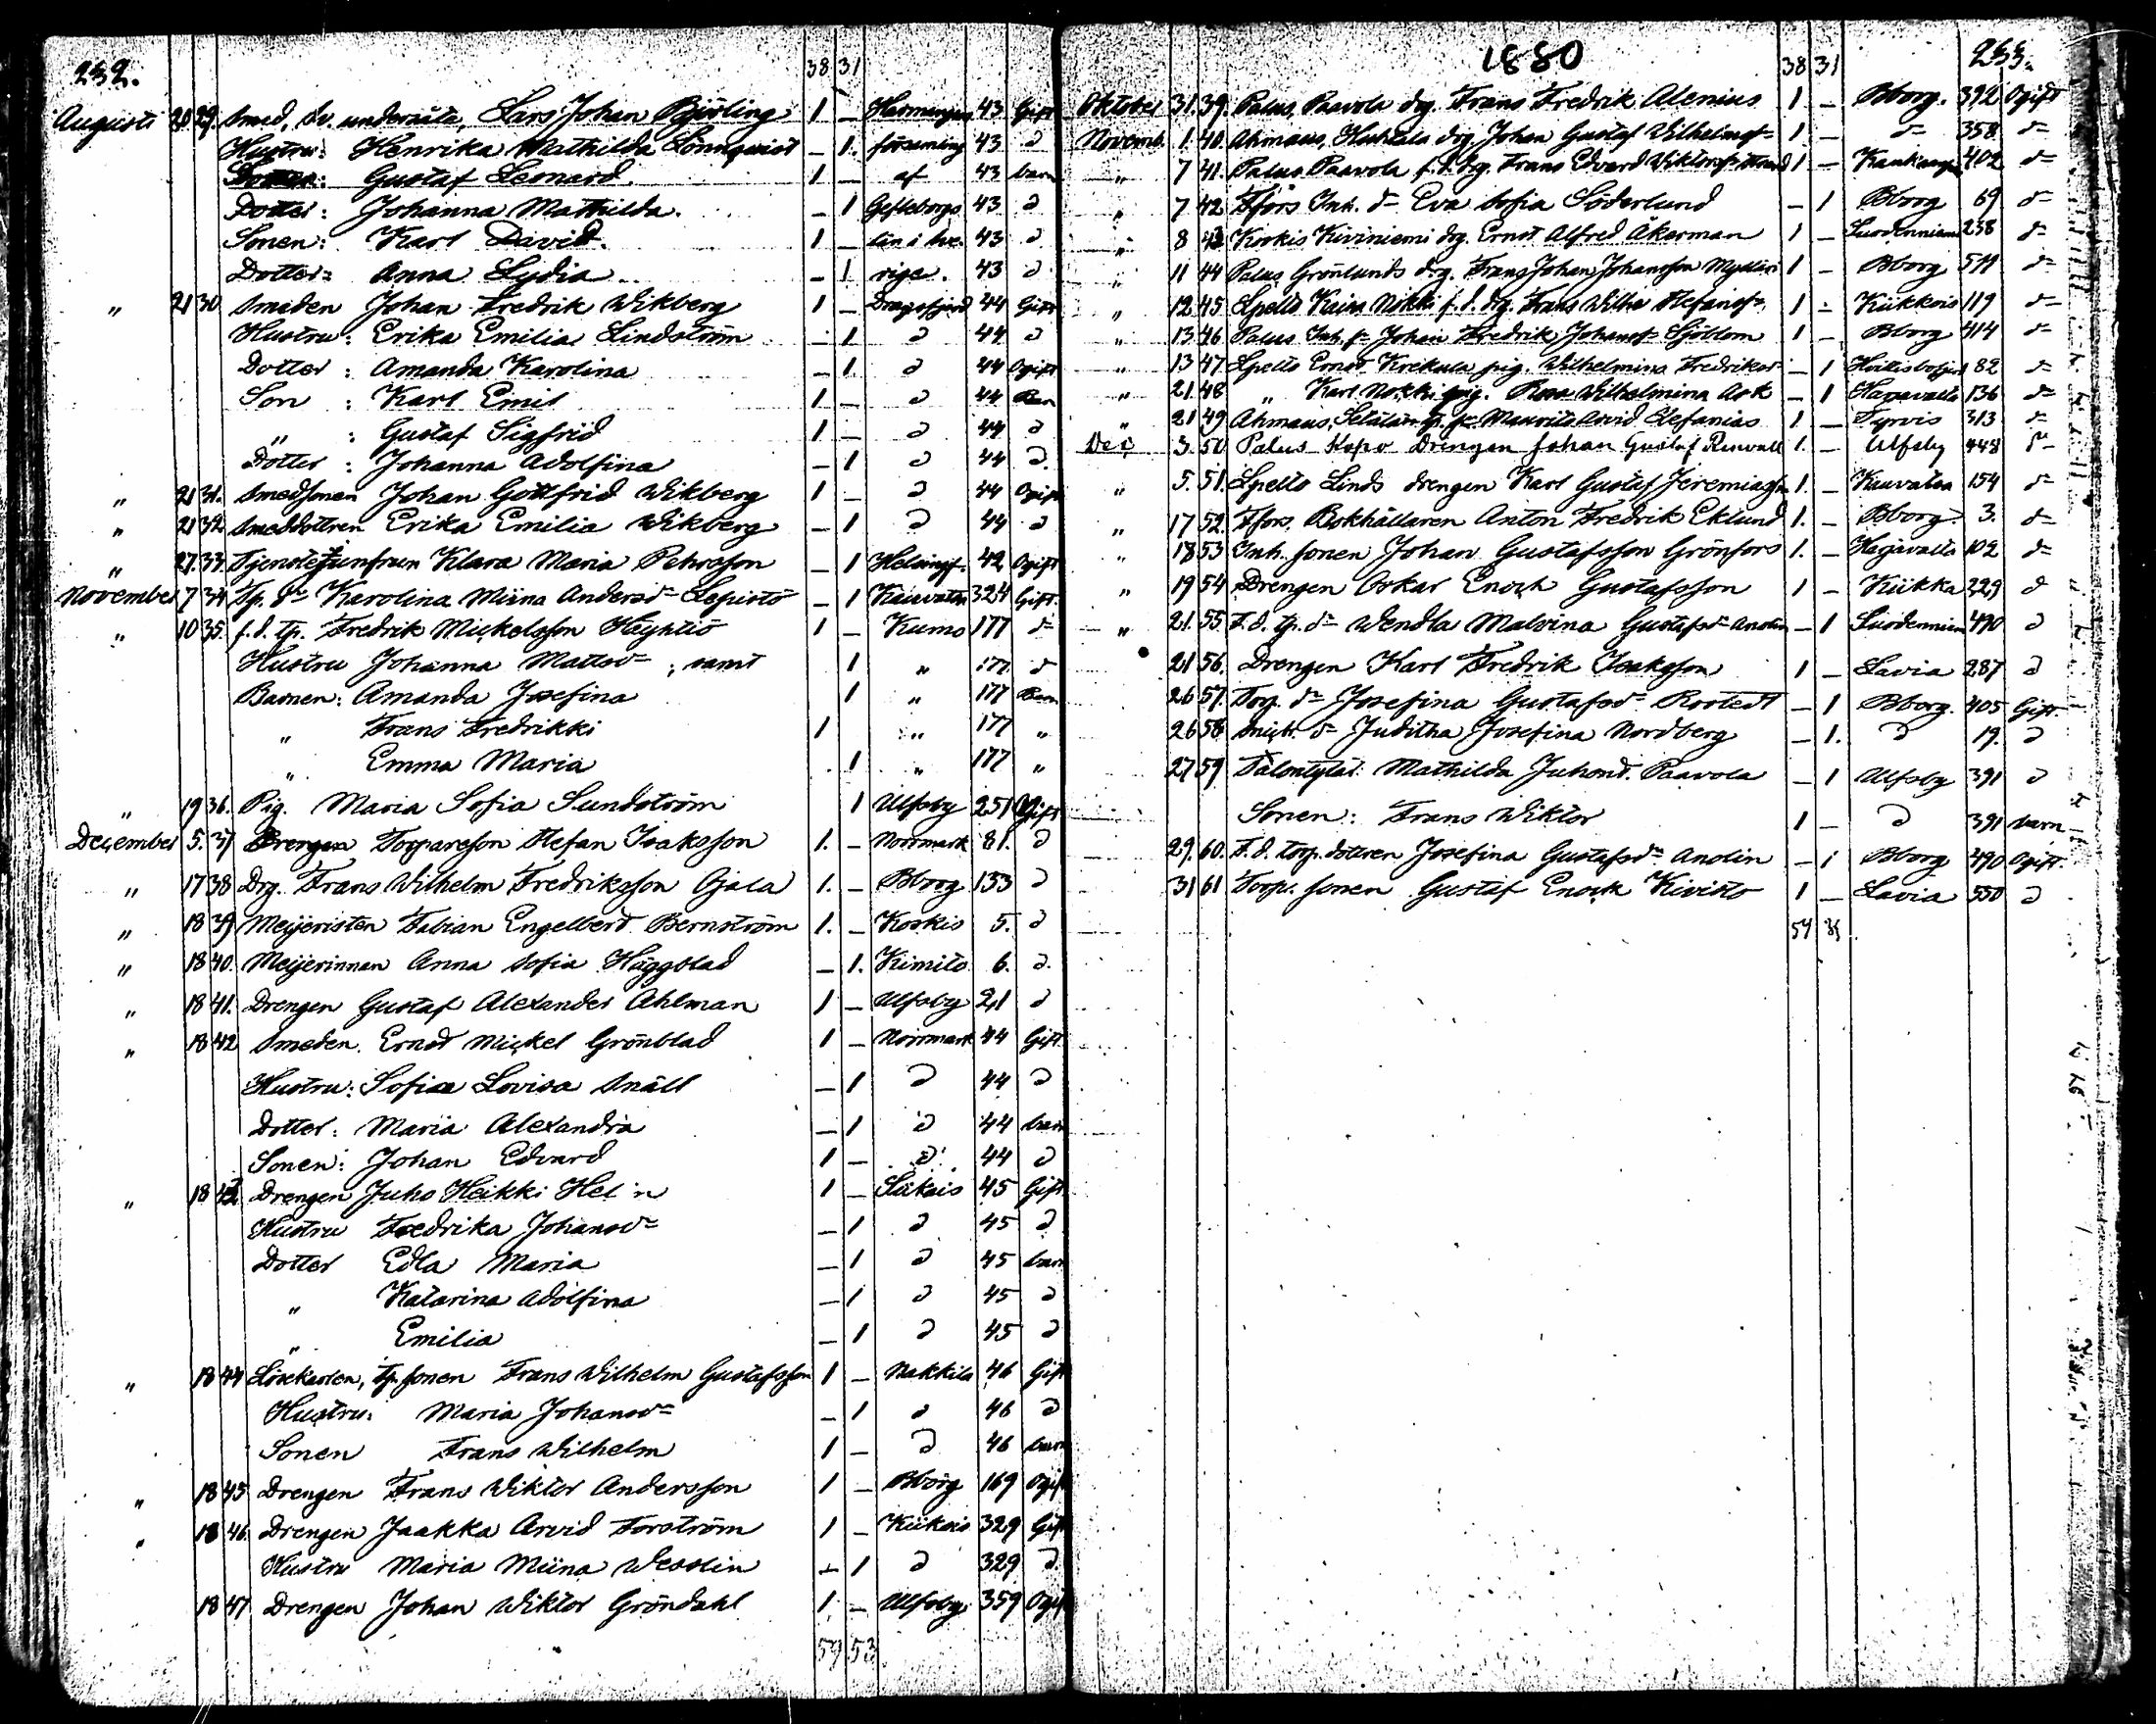 232.
38 31
Augusti 20 29. Smed, Sv. undersåte, Lars Johan Björling 1 — 43 Gift
Hustru: Henrika Mathilda Lönnqvist — 1. församling 43 d
Gustaf Leonard 1 — af 43 barn
Dotter: Johanna Mathilda. — 1 Gefleborgs 43 d
Sonen: Karl David. 1 — län i Sve- 43 d
Dotter: Anna Lydia — 1 rige. 43 d
" 21 30 Smeden Johan Fredrik Wikberg 1 — Dragsfjerd 44 Gift
Hustru: Erika Emilia Lindström — 1 d 44 d
Dotter: Amanda Karolina — 1. d 44 Ogift
Son: Karl Emil 1 — d 44 Barn
" : Gustaf Sigfrid 1 — d 44 d
Dotter: Johanna Adolfina — 1 d 44 d.
" 21 31. Smedsonen Johan Gottfrid Wikberg 1 — d 44 Ogift
" 21 32 Smeddottren Erika Emilia Wikberg — 1 d 44 d
" 27. 33. Tjenstejunfrun Klara Maria Pehrsson — 1 Helsingf. 42 Ogift
November 7 34 Tp. dr Karolina Miina Andersdr Lepistö — 1 Kauvatsa 324 Gift.
" 10 35. f.d. tp. Fredrik Mickelsson Häyhtiö 1 — Kumo 177 d
Hustru Johanna Mattsdr, samt 1 " 177 d
Barnen: Amanda Josefina 1 " 177 Barn
" Frans Fredrikki 1 " 177 "
" Emma Maria 1 " 177 "
" 19 36. Pig. Maria Sofia Sundström 1 Ulfsby 257 Ogift
December 5. 37 Drengen Torpareson Stefan Isaksson 1. — Norrmark 81. d
" 17 38 Drg. Frans Wilhelm Fredriksson Ojala 1. — Bborg 133 d
" 18 39 Meijeristen Fabian Engelbert Bernström 1. — Koskis 5. d
" 18 40. Meijerinnan Anna Sofia Häggblad — 1. Kimito 6. d.
" 18 41. Drengen Gustaf Alexander Ahlman 1 — Ulfsby 21 d
" 18 42 Smeden Ernst Mickel Grönblad 1 — Norrmark 44 Gift
Hustru: Sofia Lovisa Snäll — 1 d 44 d
Dotter: Maria Alexandra — 1 d 44 barn
Sonen: Johan Edvard 1 — d 44 d
" 18 43 Drengen Juho Heikki Hel n 1 — 45 Gift
Hustru Fredrika Johansdr — 1 d 45 d
Dotter Edla Maria — 1 d 45 barn
" Katarina Adolfina — 1 d 45 d
" Emilia — 1 d 45 d
" 18 44 Löskarlen, tp. sonen Frans Wilhelm Gustafsson 1 — Nakkila 46 Gift
Hustru: Maria Johansdr — 1 d 46 d
Sonen Frans Wilhelm 1 — d 46 barn
" 18 45 Drengen Frans Wiktor Andersson 1 — Bborg 169 Ogift
" 18 46. Drengen Jaakka Arvid Forström 1 — Kiikois 329 Gift
Hustru Maria Miina Wesslin — 1 d 329 d.
18 47 Drengen Johan Wiktor Gröndahl 1 — Ulfsby 359 Ogift
59 53
1880
38 31
233.
Oktober 31. 39. Palus, Paavola drg. Frans Fredrik Alenius 1 — Bborg. 392 Ogift
Novemb. 1. 40. Ahmaus, drg. Johan Gustaf Wilhelmsf 1 — d 358 d
" 7 41. Palus Paavola f.d. drg. Frans Edvard 1 — 402 d
" 7 42 Ffors Inh. dr Eva Sofia Söderlund — 1 Bborg 69 d
" 8 43 Koskis Kiviniemi drg. Ernst Alfred Åkerman 1 — Suodenniemi 238 d
" 11 44 Palus Grönlunds drg. Frans Johan Johansson 1 — Bborg 511 d
" 12 45 Spelto Nokki f.d. drg. Frans Wilho Stefansf. 1 — Kiikkois 119 d
" 13. 46 Palus Inh. s. Johan Fredrik Johansf Sjöblom 1 — Bborg 414 d
" 13 47 Spelto Ernst Krekula pig. Wilhelmina Fredriksdr — 1 82 d
" 21. 48 " Karl Nokki pig. Rosa Wilhelmina Ask — 1 Harjavalta 136 d
" 21 49 Ahmaus, Maurits Arvid Stefanias 1 — Tyrvis 313 d
Dec 3. 50 Palus Drengen Johan Gustaf Renvall 1. — Ulfsby 448 d
" 5. 51. Spelto Linds drengen Karl Gustaf Jeremiasson 1. — Kauvatsa 154 d
" 17 52. Ffors. Bokhållaren Anton Fredrik Eklund 1. — Bborg 3. d
" 18 53 Inh. sonen Johan Gustafsson Grönfors 1. — Harjavalta 102 d
" 19 54 Drengen Oskar Enoch Gustafsson 1 — Kiikka 229 d
" 21. 55. F.d. tp. dr Wendla Malvina Gustafsdr Anolin — 1 Suodenniemi 490 d
21 56. Drengen Karl Fredrik Isaksson 1 — Lavia 287 d
26 57. Torp. dr Josefina Gustafsdr Rostedt — 1 Bborg. 405 Gift.
26 58 Snick. dr Juditha Josefina Nordberg — 1. d 19. d
27 59 Mathilda Juhond. Paavola — 1 Ulfsby 391 d
Sonen: Frans Wiktor 1 — d 391 barn
29. 60. F.d. torp. dottren Josefina Gustafsdr Anolin — 1 Bborg 490 Ogift.
31 61 Torp. sonen Gustaf Enock Kivistö 1 — Lavia 550 d